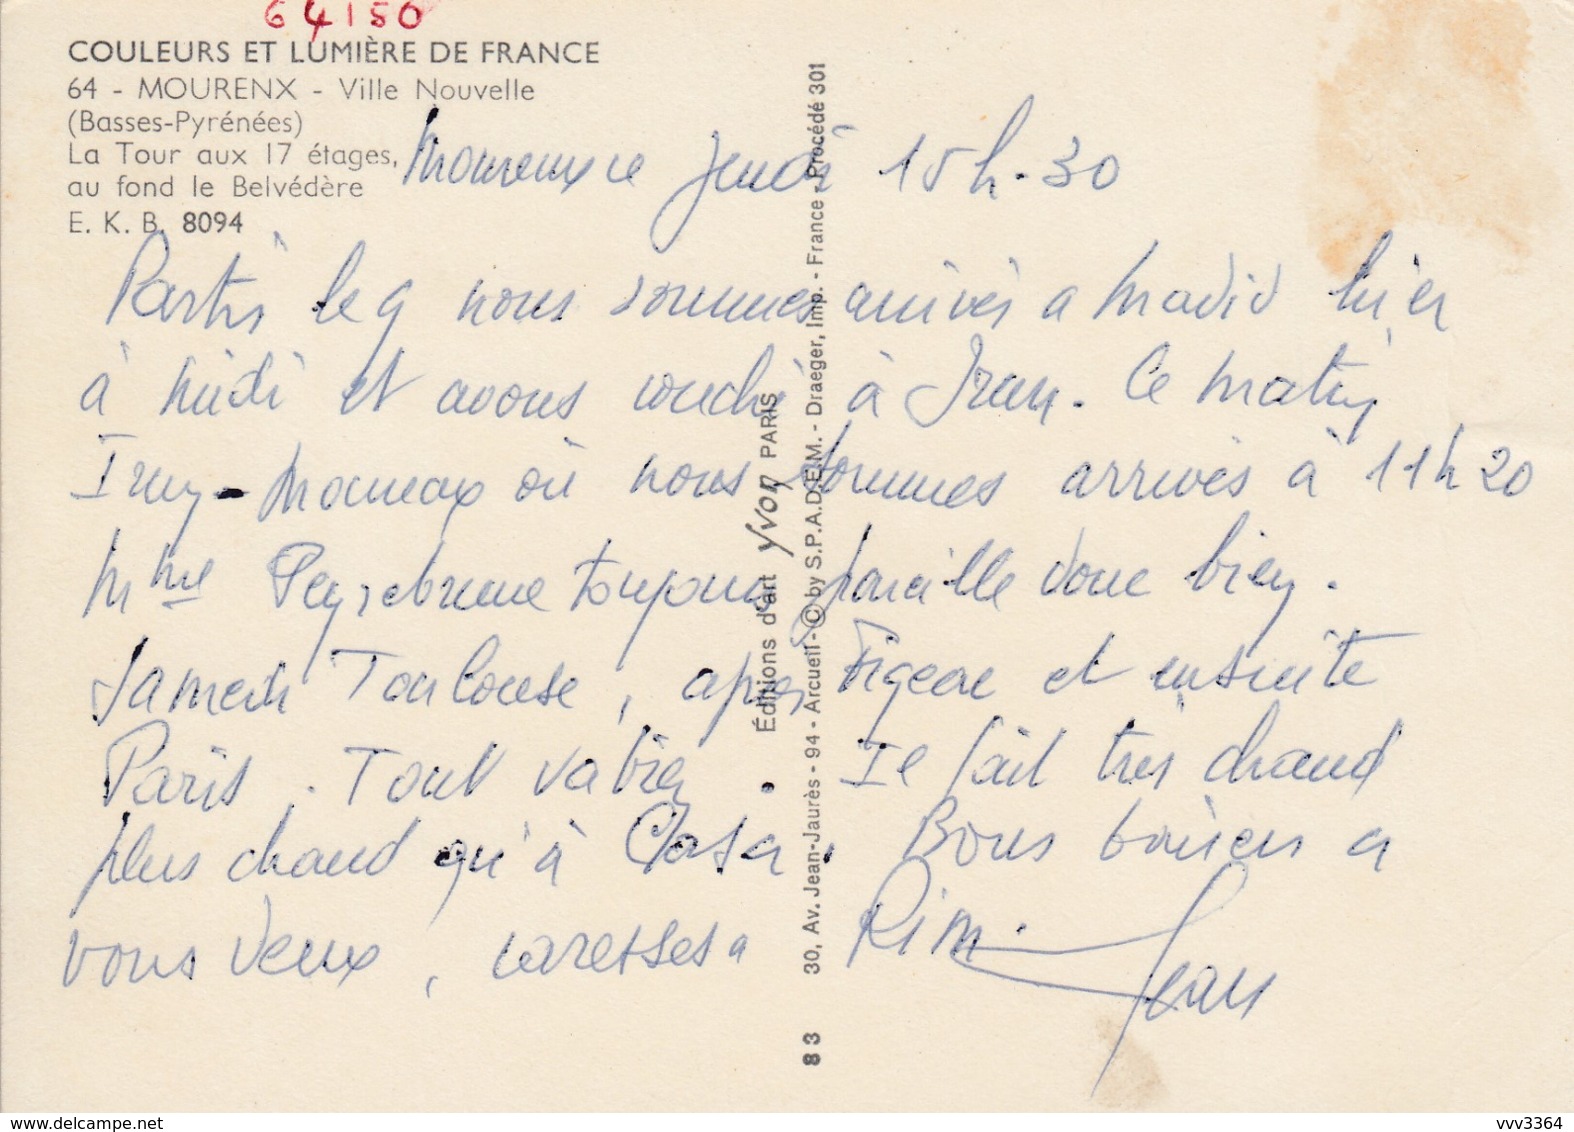 64150
COULEURS ET LUMIÈRE DE FRANCE
64 - MOURENX - Ville Nouvelle
(Basses-Pyrénées)
La Tour aux 17 étages,
au fond le Belvédère
E. K. B. 8094
Mourenx le jeudi 15h.30
Partis le 9 nous sommes arrivés a Madrid hier
à midi et avons couché à Irun. Ce matin
Irun - Mourenx où nous sommes arrivés à 11h20
Mme Peyrebrune toujours pareille donc bien.
Samedi Toulouse, après Figeac et ensuite
Paris. Tout va bien. Il fait très chaud
plus chaud qu'à Casa. Bons baisers a
vous deux, caresses a Rimi.
Jean
Éditions d'art yvon PARIS
30, Av. Jean-Jaurès - 94 - Arcueil - © by S.P.A.D.E.M. - Draeger, Imp. - France - Procédé 301
83
vvv3364